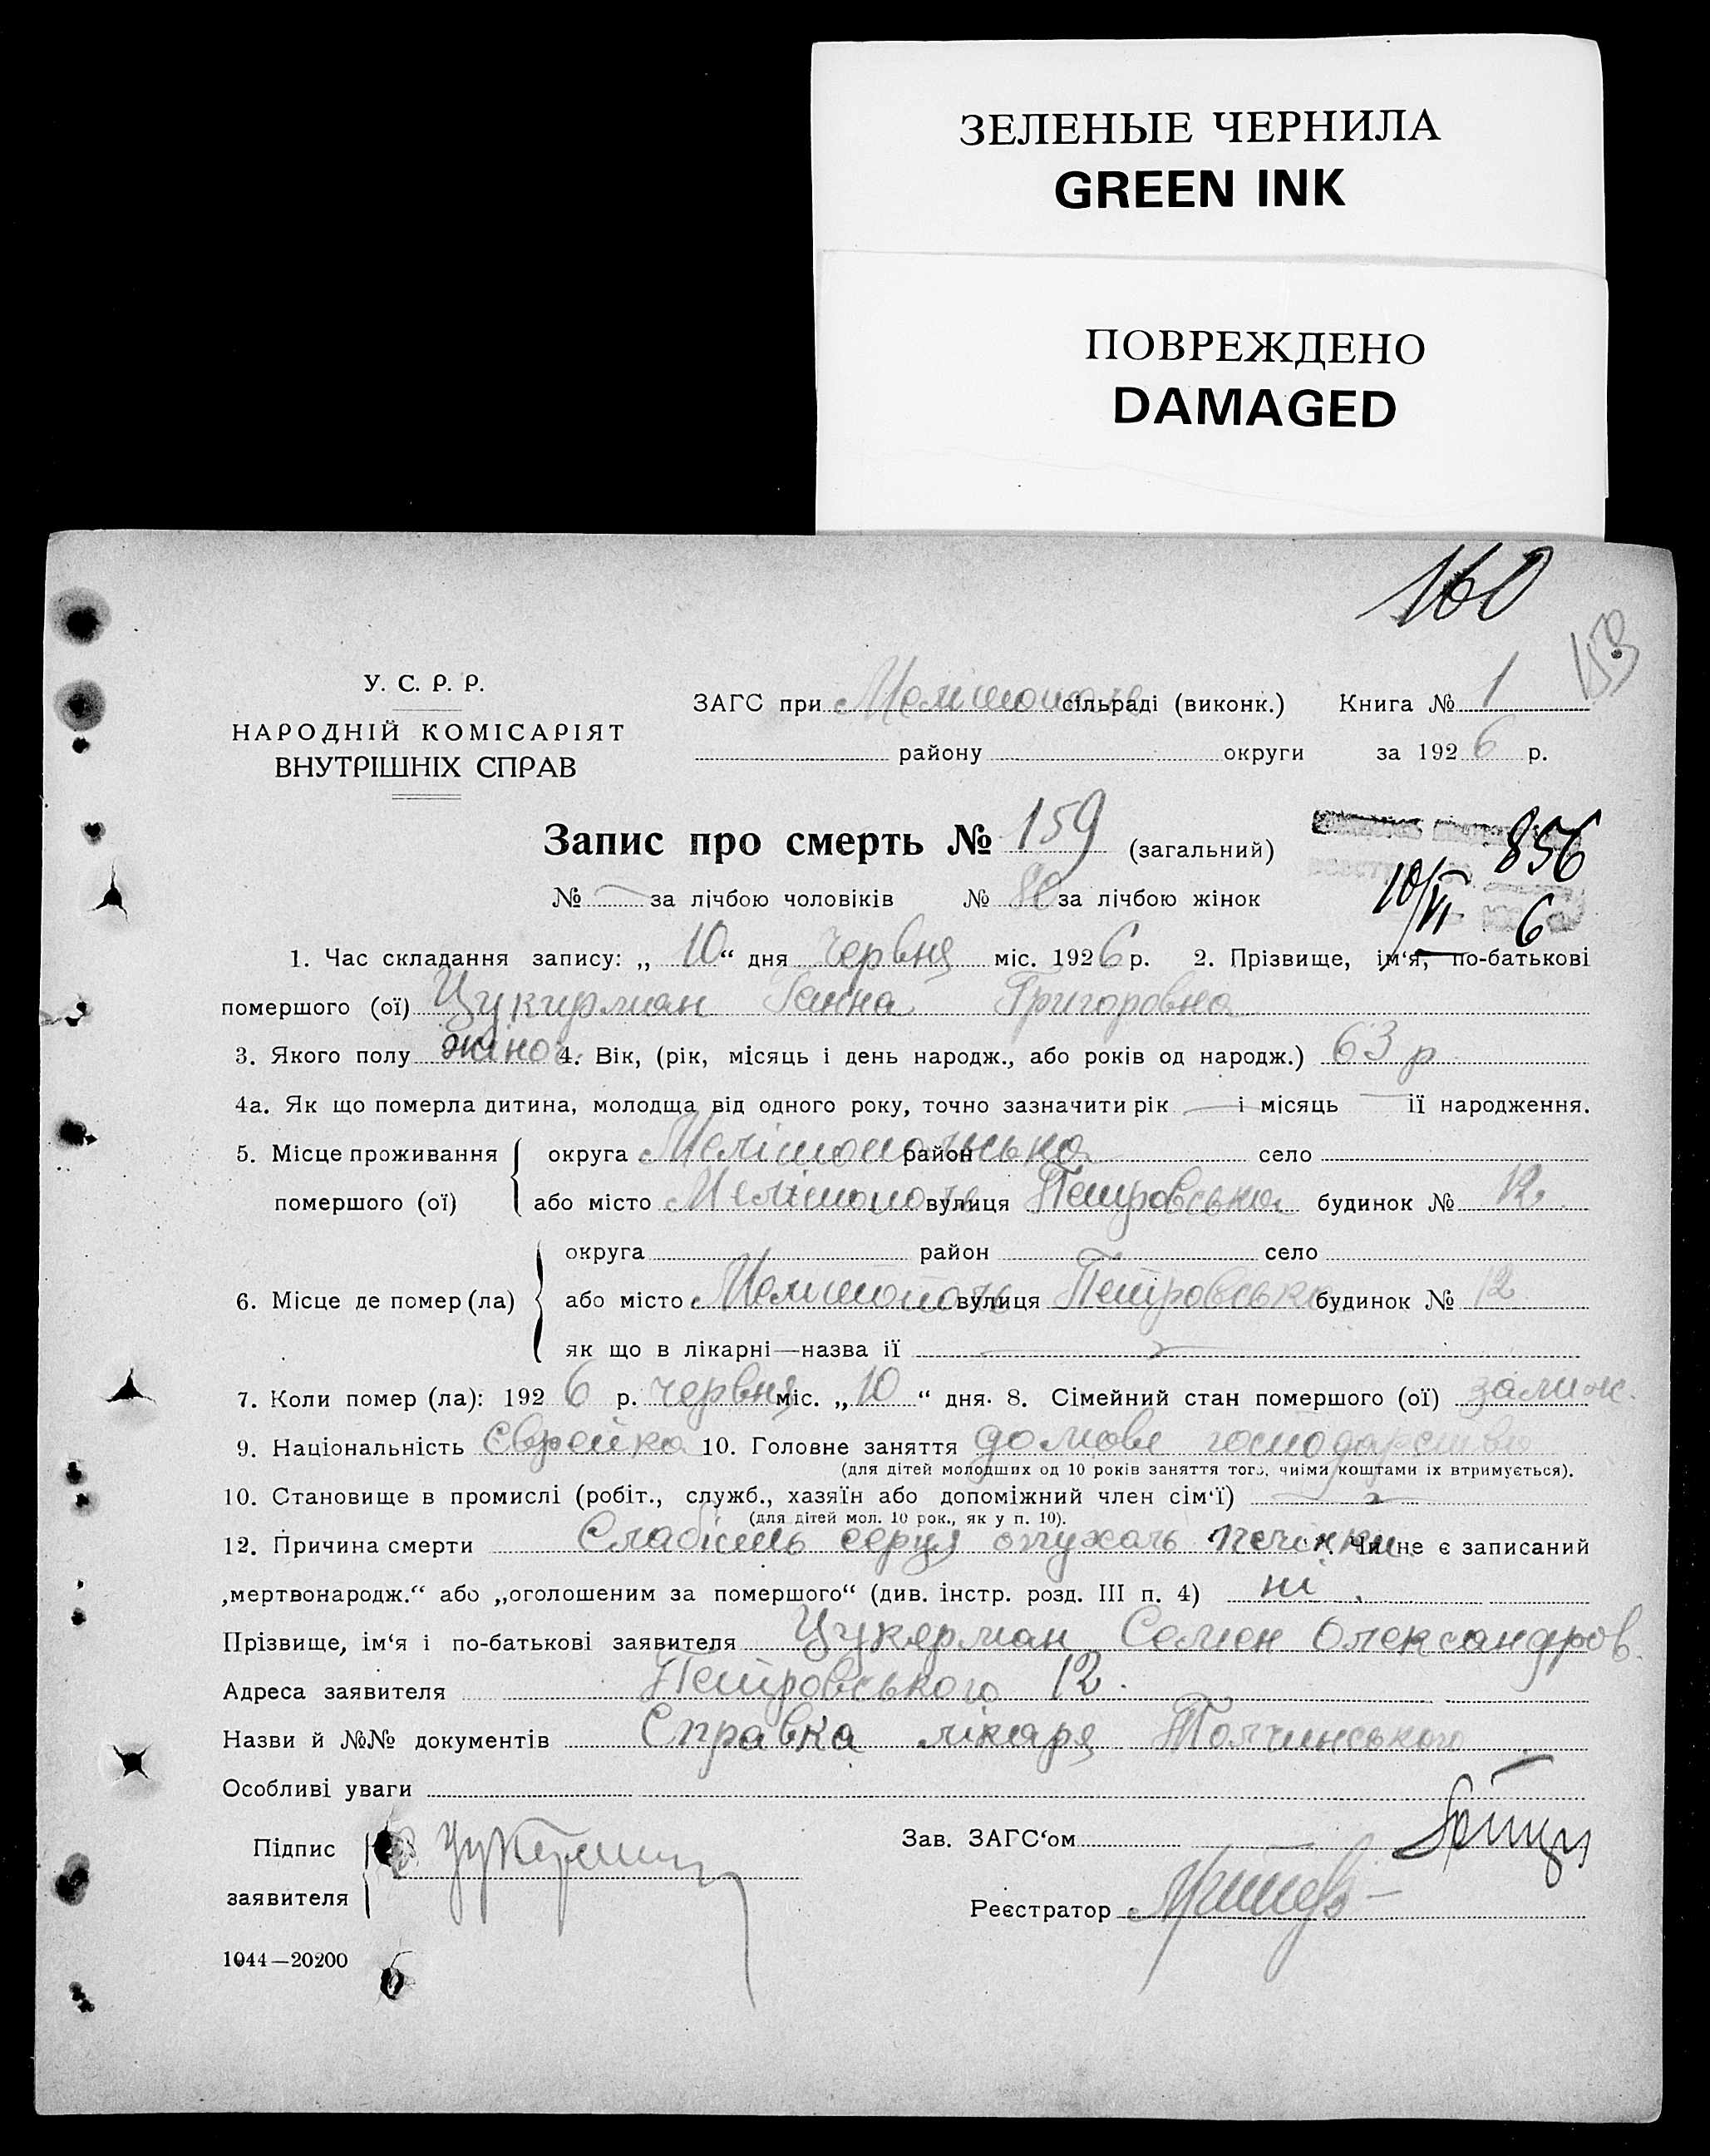 ЗЕЛЕНЫЕ ЧЕРНИЛА
GREEN INK
ПОВРЕЖДЕНО
DAMAGED
160
153
У. С. Р. Р.
НАРОДНІЙ КОМІСАРІЯТ
ВНУТРІШНІХ СПРАВ
ЗАГС при Мелітополь сільраді (виконк.) Книга № 1
району округи за 1926 р.
Запис про смерть № 159 (загальний)
856
№ — за лічбою чоловіків № 80 за лічбою жінок
10/VI 6
1. Час складання запису: „10“ дня червня міс. 1926 р. 2. Прізвище, ім‘я, по-батькові
помершого (ої) Цукирман Ганна Григоровна
3. Якого полу жіноч. 4. Вік, (рік, місяць і день народж., або років од народж.) 63 р
4а. Як що померла дитина, молодща від одного року, точно зазначити рік — і місяць — її народження.
5. Місце проживання округа Мелітопольська район село
помершого (ої) або місто Мелітополь вулиця Петровська будинок № 12.
округа район село
6. Місце де помер (ла) або місто Мелитополь вулиця Петровська будинок № 12
як що в лікарні—назва її —
7. Коли помер (ла): 1926 р. червня міс. „10“ дня. 8. Сімейний стан помершого (ої) заміж.
9. Національність Єврейка 10. Головне заняття домове господарство
(для дітей молодших од 10 років заняття того, чиіми коштами їх втримується).
10. Становище в промислі (робіт., служб., хазяїн або допоміжний член сім‘ї) —
(для дітей мол. 10 рок., як у п. 10).
12. Причина смерти Слабість серця опухоль печінки. Чи не є записаний
„мертвонародж.“ або „оголошеним за помершого“ (див. інстр. розд. III п. 4) ні.
Прізвище, ім‘я і по-батькові заявителя Цукерман Семен Олександров.
Адреса заявителя Петровського 12.
Назви й №№ документів Справка лікаря Толчинського
Особливі уваги
Підпис
заявителя Цукерман
Зав. ЗАГС‘ом
Реєстратор
1044—20200
6